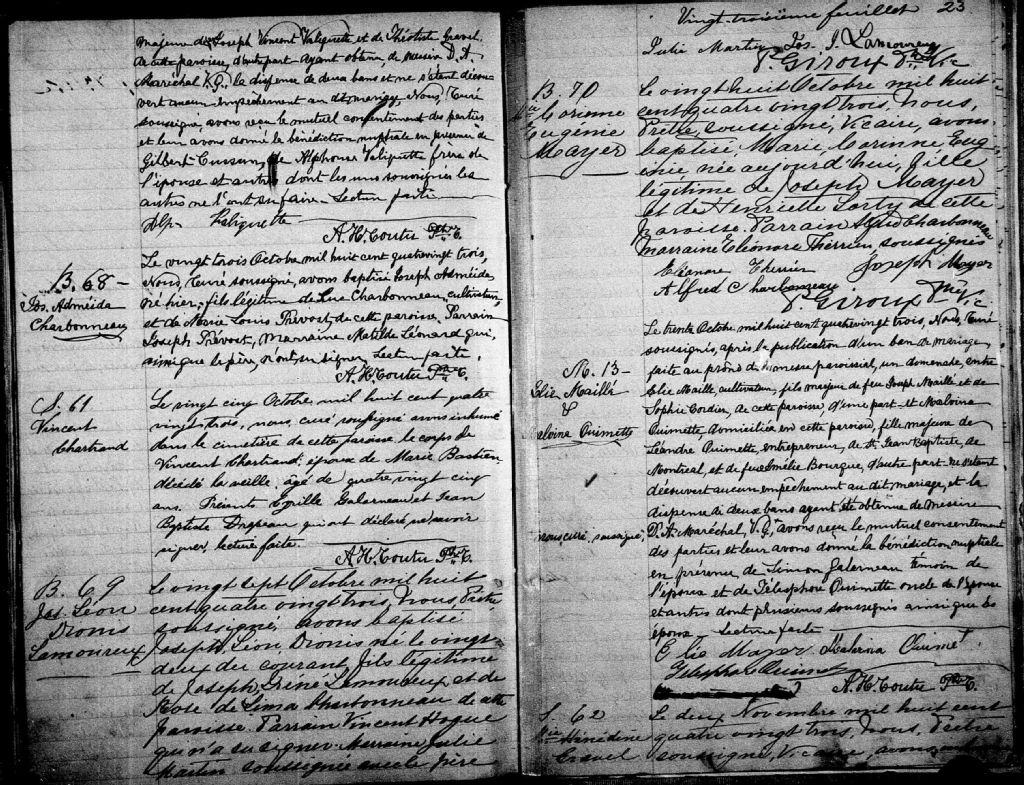 majeure de Joseph Vincent Valiquette et de Théotiste Gravel
de cette paroisse, d'autre part ayant obtenu de messire D. A.
Maréchal V. G. la dispense de deux bans et ne s'étant décou
vert aucun empêchement au dit mariage, Nous, Curé
soussigné, avons reçu le mutuel consentement des parties
et leur avons donné la bénédiction nuptiale en présence de
Gilbert de Alphonse Valiquette frère de
l'épouse et autres dont les uns soussignés les
autres ne l'ont su faire. Lecture faite
Alp. Valiquette
A. H. Coutu Ptre C.
B. 68 -
Jos. Adméida
Charbonneau
Le vingt trois Octobre mil huit cent quatrevingt trois,
Nous, Curé soussigné, avons baptisé Joseph Adméida
né hier, fils légitime de Luc Charbonneau, cultivateur
et de Marie Louis Prévost, de cette paroisse. Parrain
Joseph Prévost, Marraine Matilde Léonard qui,
ainsi que le père, n'ont su signer. Lecture faite.
A. H. Coutu Ptre C.
S. 61
Vincent
Chartrand
Le vingt cinq Octobre mil huit cent quatre
vingt trois, nous, curé, soussigné avons inhumé
dans le cimetière de cette paroisse le corps de
Vincent Chartrand, époux de Marie Bastien
décédé la veille, âgé de quatre vingt cinq
ans. Présents Cyrille Galerneau et Jean
Baptiste qui ont déclaré ne savoir
signer, lecture faite.
A. H. Coutu Ptre C.
B. 69
Jos. Léon
Dionis
Lamoureux
Le vingt sept Octobre mil huit
cent quatre vingt trois, Nous, Prêtre
soussigné avons baptisé
Joseph, Léon Dionis né le vingt
deux du courant, fils légitime
de Joseph, Iréné Lamoureux et de
Rose de Lima Charbonneau de cette
paroisse. Parrain Vincent Hogue
qui n'a su signer. Marraine Julie
Martin soussignée avec le père
Vingt-troisième feuillet 23
Julie Martin Jos. I. Lamoureux
P. Giroux Ptre Vic
B. 70
Mie Corinne
Eugenie
Mayer
Le vingt huit Octobre mil huit
cent quatre vingt trois, Nous,
Prêtre, soussigné, Vicaire, avons
baptisé, Marie, Corinne Eug
énie née aujourd'hui, fille
légitime de Joseph Mayer
et de Henriette Lorty de cette
paroisse. Parrain Alfred Charbonneau
Marraine Eléonore Therrien, soussignés
Eléonore Therrien Joseph Mayer
Alfred Charbonneau
P. Giroux Ptre Vic
M. 13 -
Elie Maillé
&
Malvina Ouimette
Le trente Octobre mil huit cent quatrevingt trois, Nous, Curé
soussigné, après la publication d'un ban de mariage,
faite au prône de messe paroissial, un dimanche, entre
Elie Maille, cultivateur, fils majeur de feu Joseph Maille et de
Sophie Cordier, de cette paroisse, d'une part et Malvina
Ouimette domiciliée en cette paroisse, fille majeure de
Léandre Ouimette, entrepreneur, de St Jean Baptiste, de
Montréal, et de feue Amélie Bourque, d'autre part ne s'étant
découvert aucun empêchement au dit mariage, et la
dispense de deux bans ayant été obtenue de Messire
nous curé, soussigné,
D. A. Maréchal, V. G., avons reçu le mutuel consentement
des parties et leur avons donné la bénédiction nuptiale
en présence de Simon Galerneau témoin de
l'époux et de Télesphore Ouimette oncle de l'épouse
et autres dont plusieurs soussignés ainsi que les
époux - Lecture faite
Elie Mayer Malvina Ouimé
A. H. Coutu Ptre C.
S. 62
Gravel
Le deux Novembre mil huit cent
quatre vingt trois, Nous, Prêtre
soussigné, Vicaire, avons